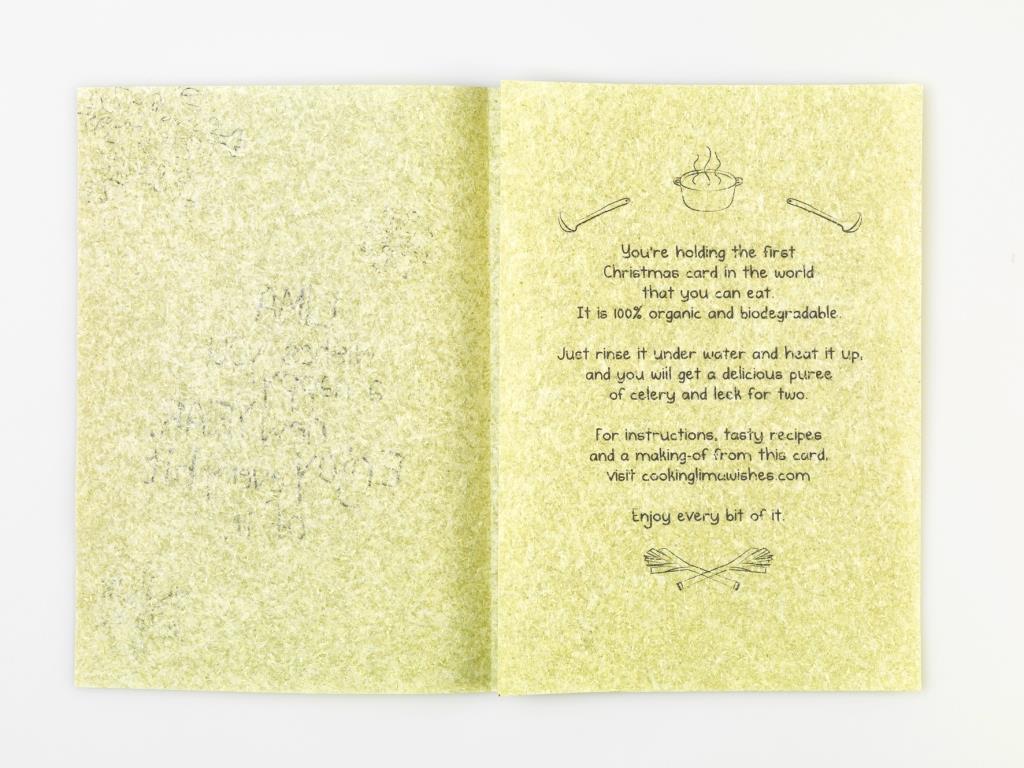 You're holding the first
Christmas card in the world
that you can eat.
It is 100% organic and biodegradable.
Just rinse it under water and heat it up,
and you will get a delicious puree
of celery and leek for two.
For instructions, tasty recipes
and a making-of from this card,
visit cookinglimawishes.com
Enjoy every bit of it.